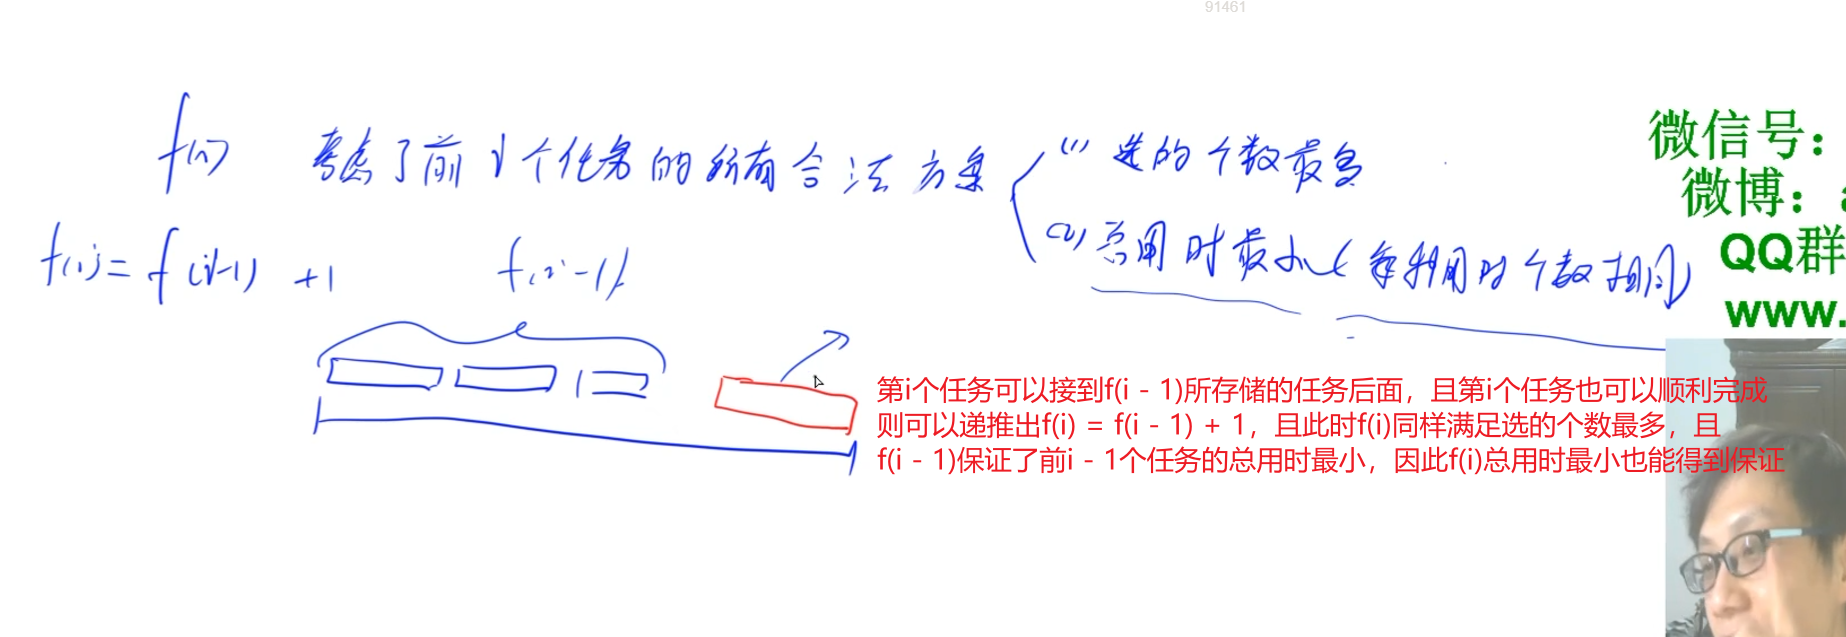 91461
f(i) 考虑了前i个任务的所有合法方案
(1) 选的个数最多
(2) 总用时最小（每种用时个数相同）
f(i) = f(i-1) +1
f(i-1)
第i个任务可以接到f(i - 1)所存储的任务后面，且第i个任务也可以顺利完成
则可以递推出f(i) = f(i - 1) + 1，且此时f(i)同样满足选的个数最多，且
f(i - 1)保证了前i - 1个任务的总用时最小，因此f(i)总用时最小也能得到保证
微信号：
微博：a
QQ群
www.